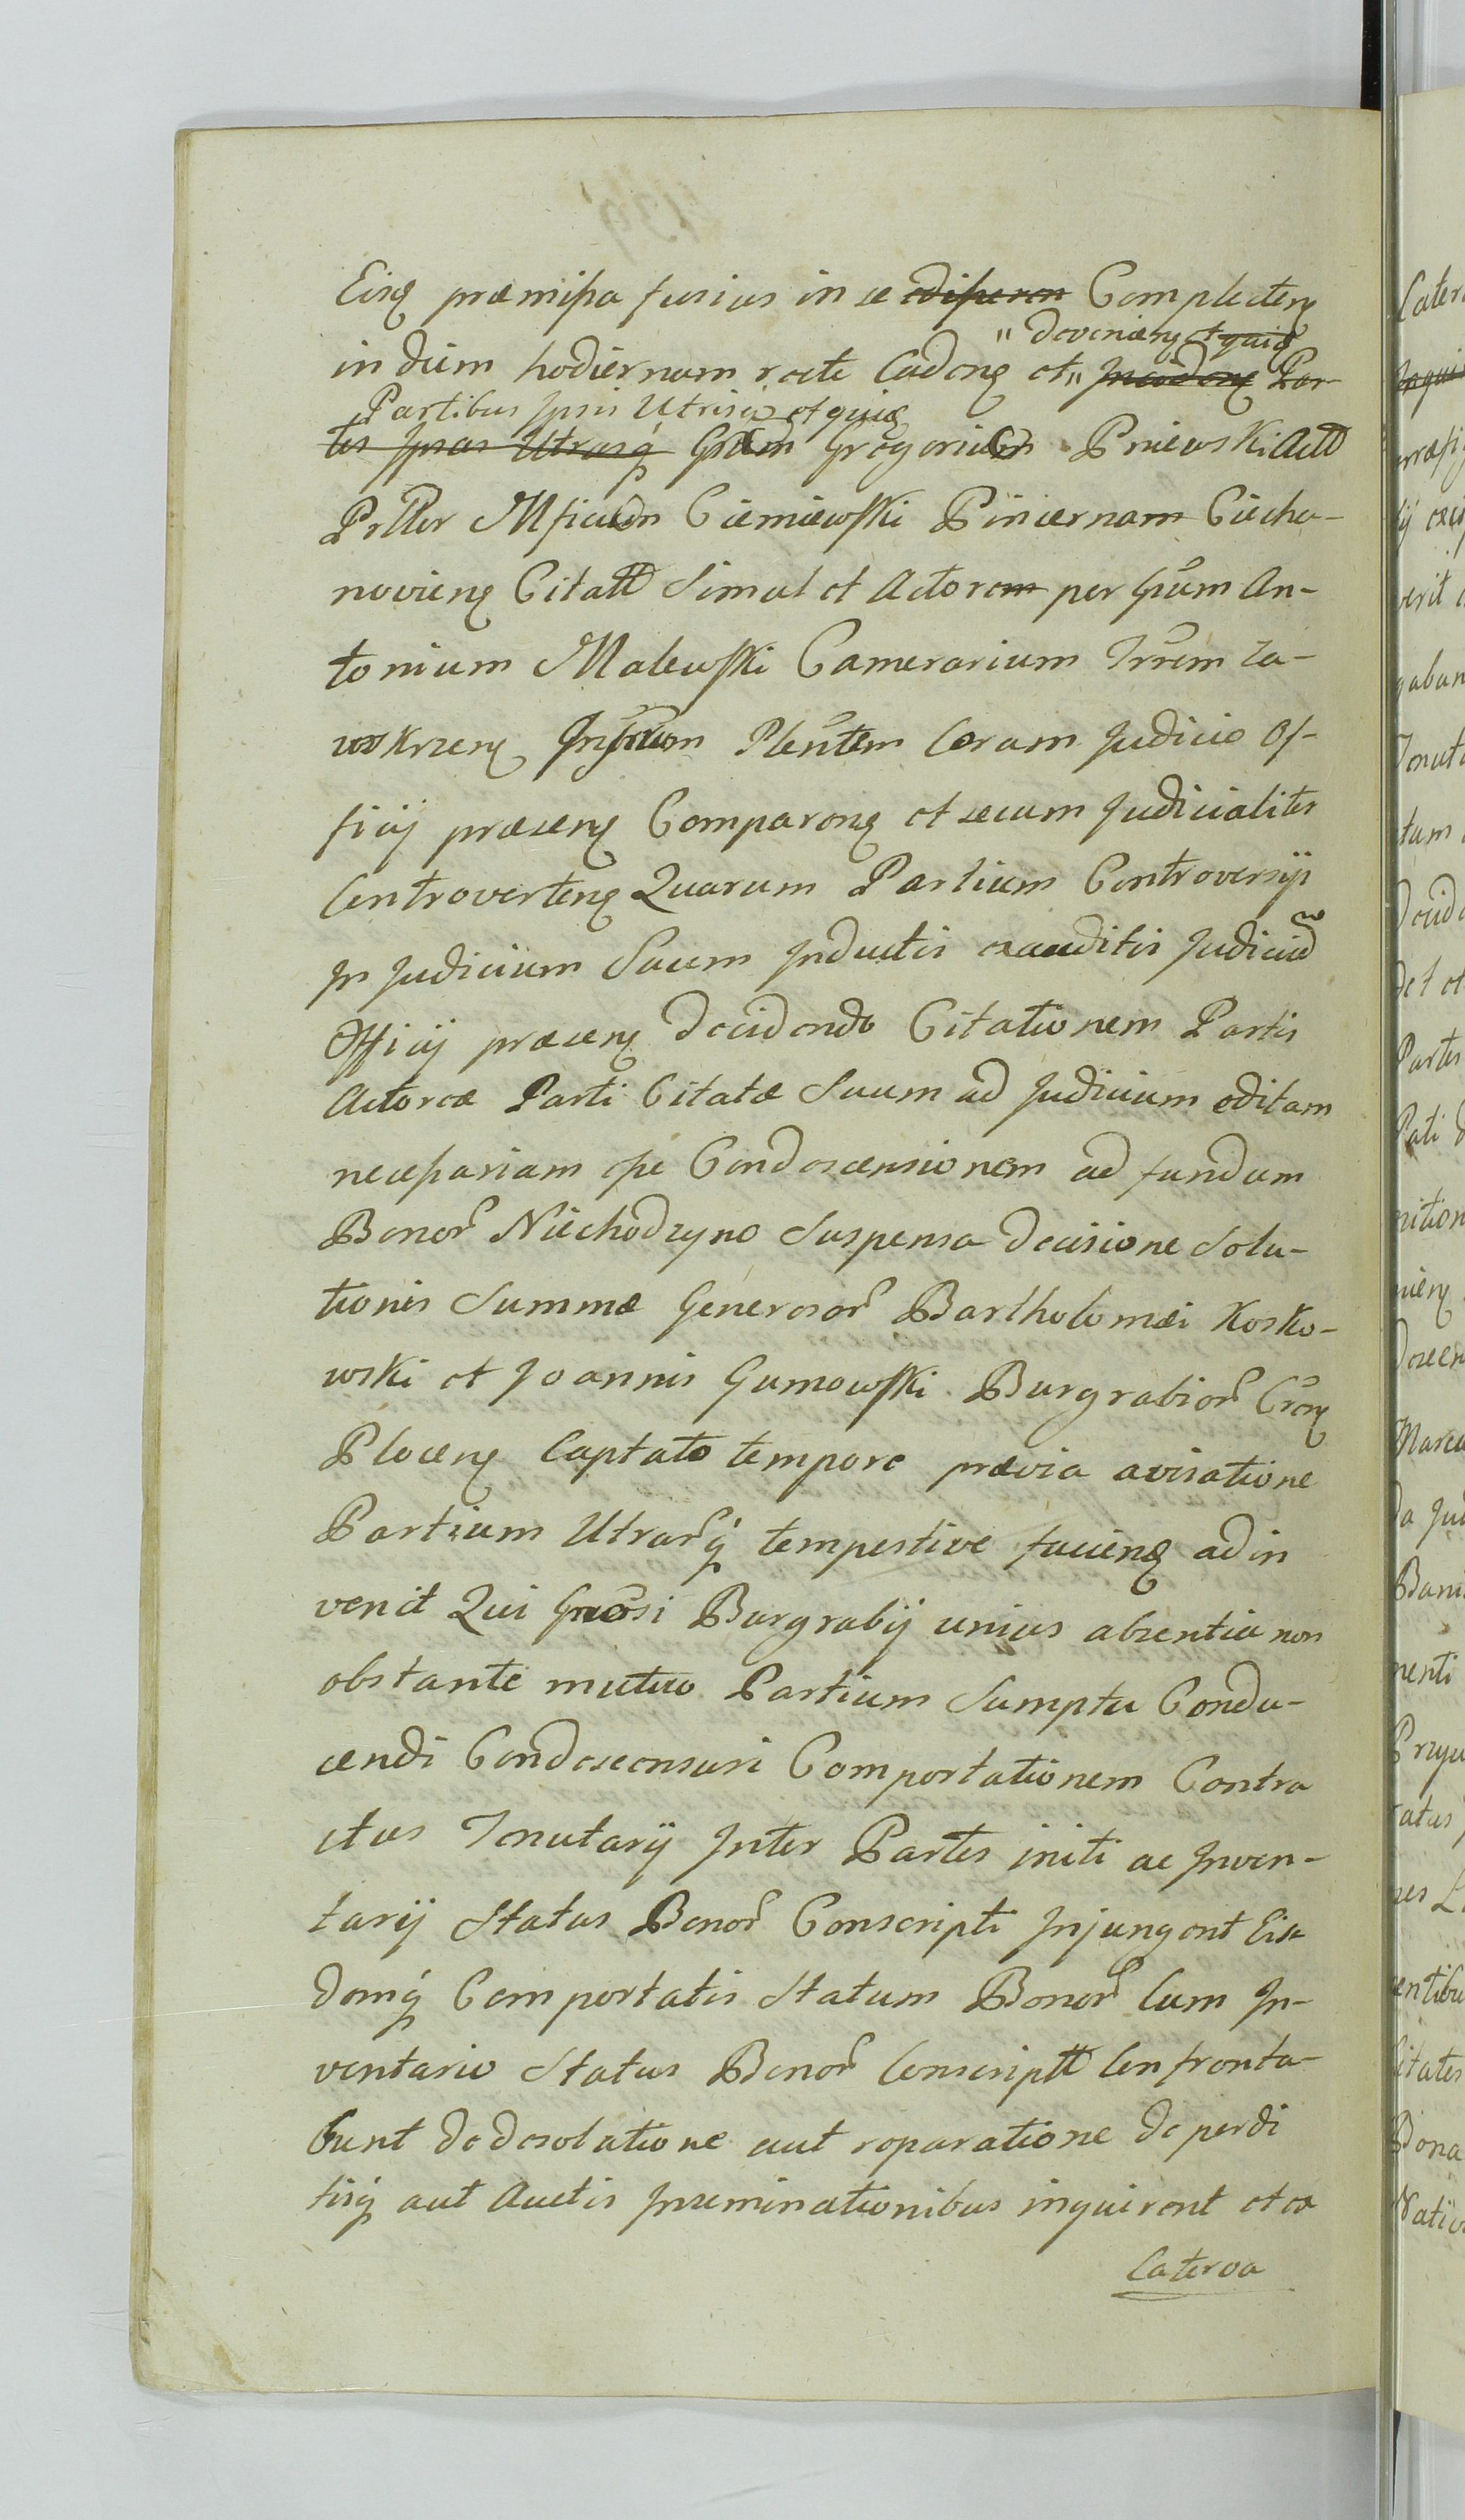 Eisq præmissa fusius in se edisseren Complecten
" devenien et quidē
in diem hodiernum recte Caden et " Inciden Par-
Partibus Ipsis Utrisq et quidē
tes Ipsas Utrasq́ Gñem Gregorium Pniewski Act
Pctlter Mficum Ciemiewski Pincernam Ciecha-
novien Citatt Simul et Actorem per Gñum An-
tonium Malewski Camerarium Trrem Za-
wskrzen Plentem Coram Judicio Of-
ficij præsen Comparen et secum Judicialiter
Controverten Quarum Partium Controversijs
In Judicium Suum Inductis exauditis Judiciū
Officij præsen decidendo Citationem Partis
Actoreæ Parti Citatæ Suum ad Judicium editam
necessariam esse Condescensionem ad fundum
Bonor Niechodzyno Suspensa decisione Solu-
tionis Summæ Generosor Bartholomæi Kosko-
wski et Joannis Gumowski Burgrabior Cren
Plocen Captato tempore prævia avisatione
Partium Utrarq́ tempestive facien ad in
venit Qui Gnosi Burgrabij unius absentia non
obstante mutuo Partium Sumptu Condu-
cendi Condescensuri Comportationem Contra
ctus Tenutarij Inter Partes initi ac Inven-
tarij Status Bonor Conscripti Injungent Eis
demq́ Comportatis Statum Bonor Cum In-
ventario Status Bonor Conscriptt Confronta-
bunt de desolatione aut reparatione de perdi
tisq́ aut Auctis Inseminationibus inquirent et ex
Caterva